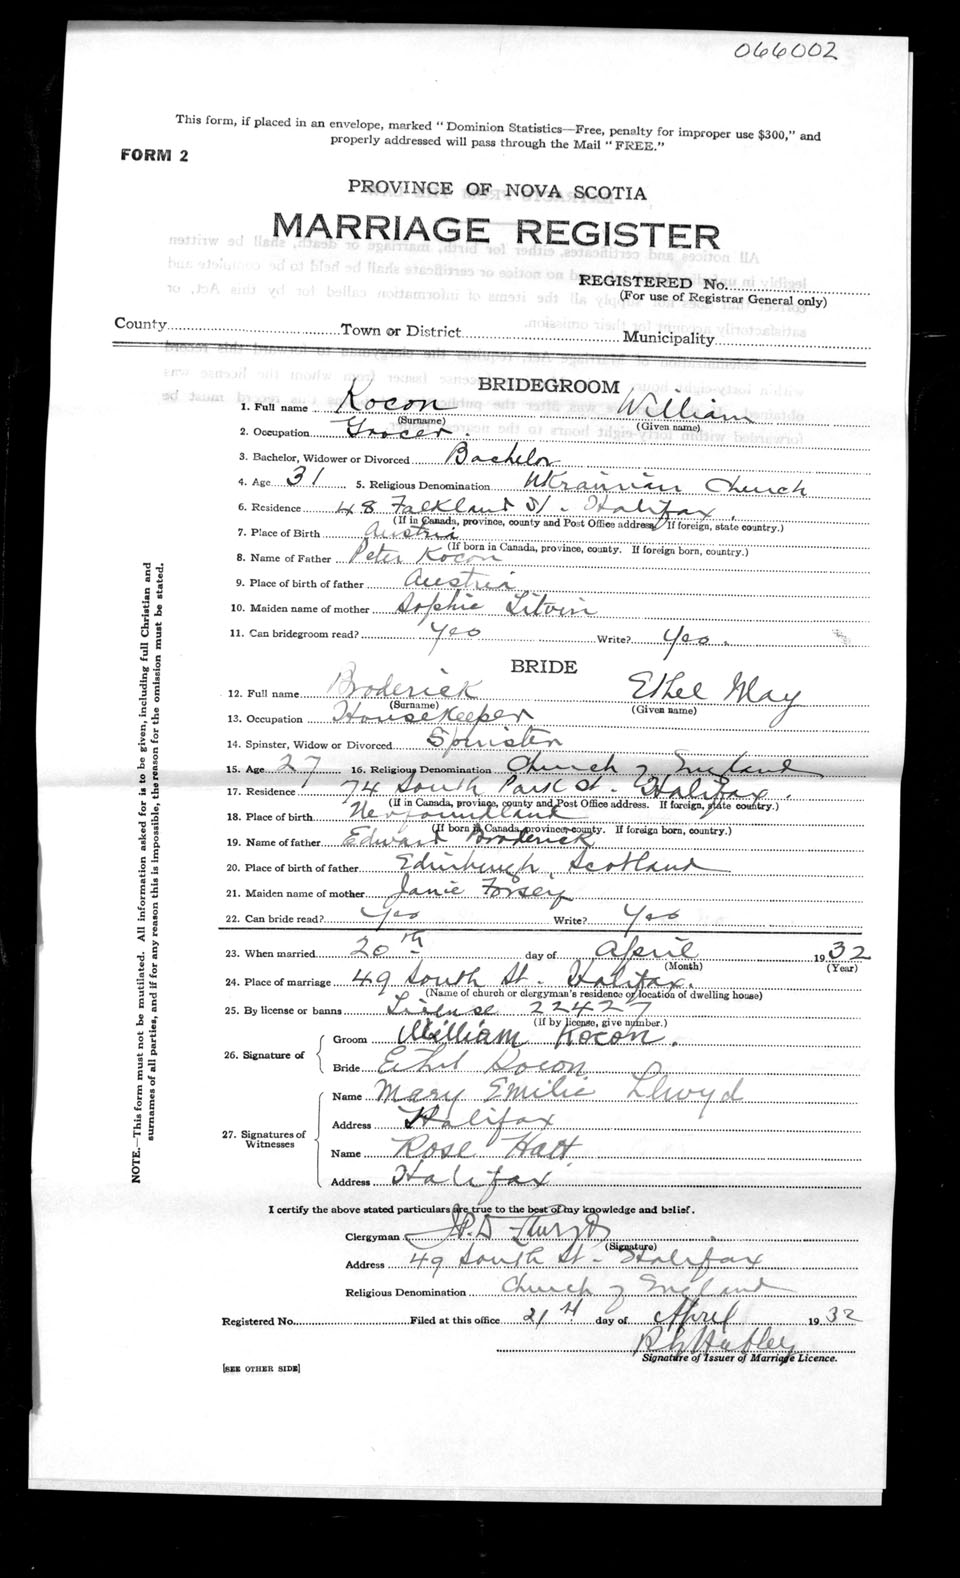 066002
This form, if placed in an envelope, marked "Dominion Statistics—Free, penalty for improper use $300," and
properly addressed will pass through the Mail "FREE."
FORM 2
PROVINCE OF NOVA SCOTIA
MARRIAGE REGISTER
REGISTERED No.
(For use of Registrar General only)
County Town or District Municipality
BRIDEGROOM
1. Full name Kocon William
(Surname) (Given name)
2. Occupation Grocer.
3. Bachelor, Widower or Divorced Bachelor
4. Age 31 5. Religious Denomination Ukrainian Church
6. Residence 48 Falkland St. Halifax.
(If in Canada, province, county and Post Office address. If foreign, state country.)
7. Place of Birth Austria
(If born in Canada, province, county. If foreign born, country.)
8. Name of Father Peter Kocon
9. Place of birth of father Austria
10. Maiden name of mother Sophie Litvin
11. Can bridegroom read? Yes Write? Yes.
BRIDE
12. Full name Broderick Ethel May
(Surname) (Given name)
13. Occupation Housekeeper
14. Spinster, Widow or Divorced Spinster
15. Age 27 16. Religious Denomination Church of England
17. Residence 74 South Park St. Halifax.
(If in Canada, province, county and Post Office address. If foreign, state country.)
18. Place of birth Newfoundland
(If born in Canada, province, county. If foreign born, country.)
19. Name of father Edward Broderick
20. Place of birth of father Edinburgh, Scotland
21. Maiden name of mother Janie Forsey
22. Can bride read? Yes Write? Yes
23. When married 20th day of April 1932
(Month) (Year)
24. Place of marriage 49 South St. Halifax.
(Name of church or clergyman's residence or location of dwelling house)
25. By license or banns License 22427
(If by license, give number.)
26. Signature of
Groom William Kocon.
Bride Ethel Kocon
27. Signatures of Witnesses
Name Mary Emilie Llwyd
Address Halifax
Name Rose Hatt
Address Halifax
I certify the above stated particulars are true to the best of my knowledge and belief.
Clergyman
(Signature)
Address 49 South St. Halifax
Religious Denomination Church of England
Registered No. Filed at this office 21st day of April 1932
Signature of Issuer of Marriage Licence.
[SEE OTHER SIDE]
NOTE.—This form must not be mutilated. All information asked for is to be given, including full Christian and
surnames of all parties, and if for any reason this is impossible, the reason for the omission must be stated.